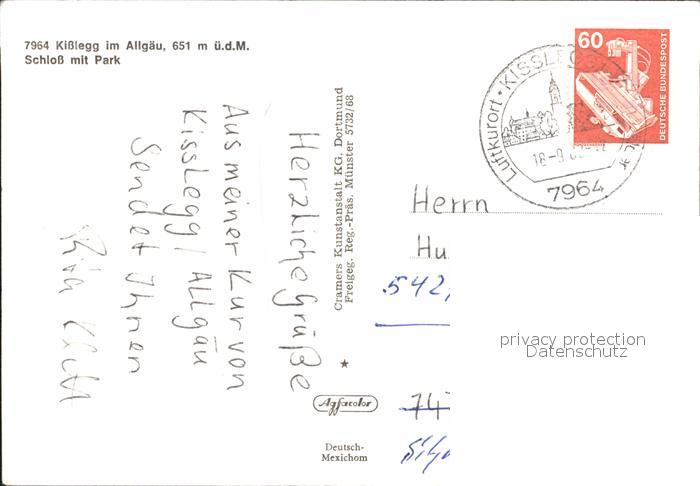 7964 Kißlegg im Allgäu, 651 m ü.d.M.
Schloß mit Park
Herzliche Grüße
Aus meiner Kur von
Kisslegg / Allgäu
Sendet Ihnen
Cramers Kunstanstalt KG. Dortmund
Freigeg. Reg.-Präs. Münster 5732/68
Agfacolor
Deutsch-
Mexichom
Luftkurort · KISSLEGG
18.-9.
7964
60
DEUTSCHE BUNDESPOST
Herrn
Hu
542
privacy protection
Datenschutz